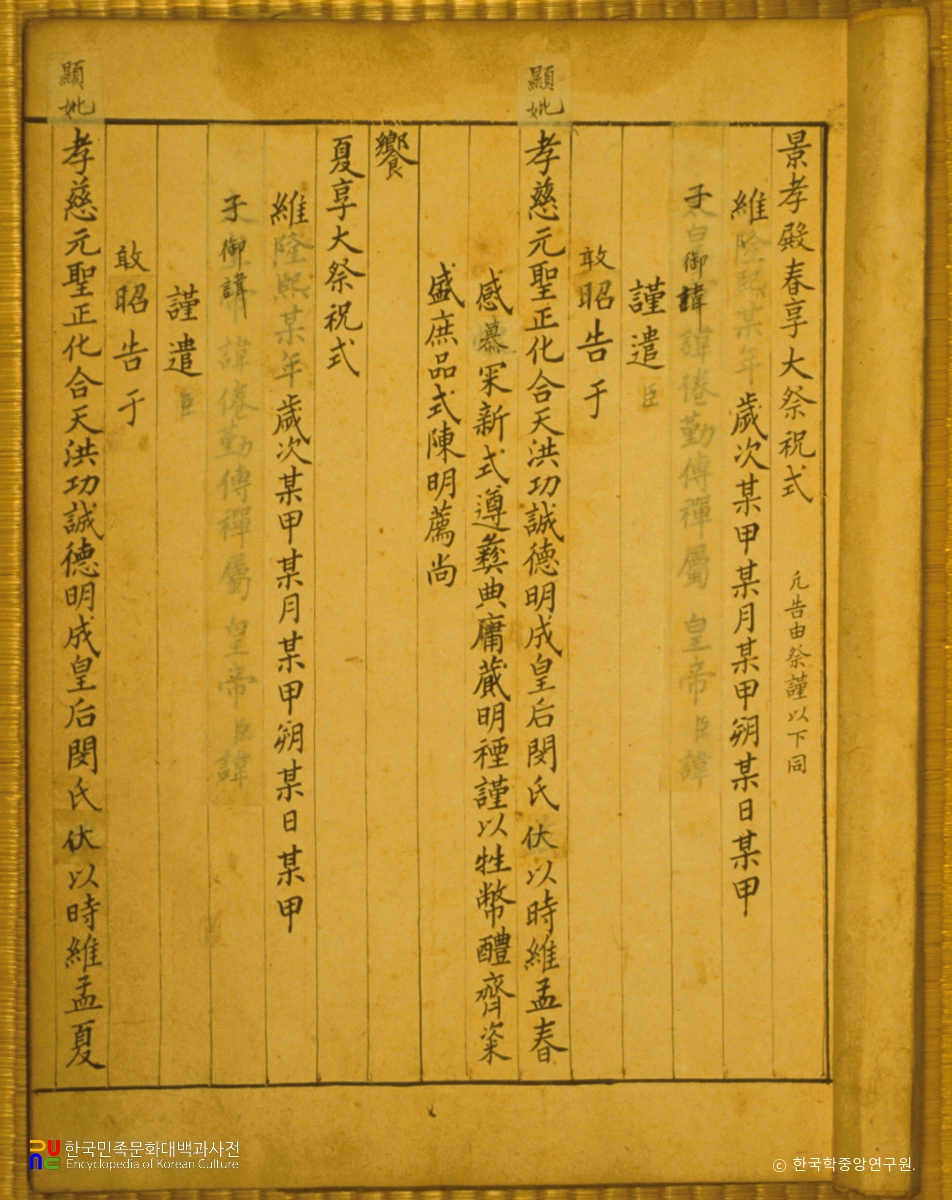 景孝殿春享大祭祝式 凢告由祭謹以下同
維隆熙某年歲次某甲某月某甲朔某日某甲
子御諱
諱倦勤傳禪屬 皇帝臣諱
謹遣臣
敢昭告于
顯妣
孝慈元聖正化合天洪功誠德明成皇后閔氏伏以時維孟春
感慕冞新式遵彜典庸蕆明禋謹以牲幣醴齊粢
盛庶品式陳明薦尙
饗
夏享大祭祝式
維隆熙某年歲次某甲某月某甲朔某日某甲
子御諱
諱倦勤傳禪屬 皇帝臣諱
謹遣臣
敢昭告于
顯妣
孝慈元聖正化合天洪功誠德明成皇后閔氏伏以時維孟夏
한국민족문화대백과사전
Encyclopedia of Korean Culture
ⓒ 한국학중앙연구원.